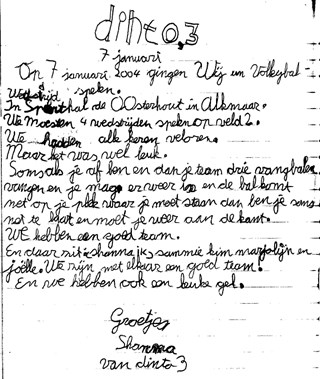 dinto,3
7 januari
Op 7 januari 2004 gingen Wij um Volleybal-
Wedstrijd spelen.
In Sporthal de Oosterhout in Alkmaar.
We Moesten 4 wedstrijden spelen op veld 2.
We hadden alle keren veloren.
Maar het was wel leuk.
Soms als je af ben en dan je team drie vangballen
vangen en je mag er weer in en de bal komt
net op je plek waar je moet staan dan ben je soms
net te laat en moet je weer aan de kant.
WE hebben een goed team.
En daar zit shanna ik, sammie kim marjolijn en
joëlle. We zijn met elkaar een goed team.
En we hebben ook een leuke gel.
Groetjes
Shanna
van dinto 3